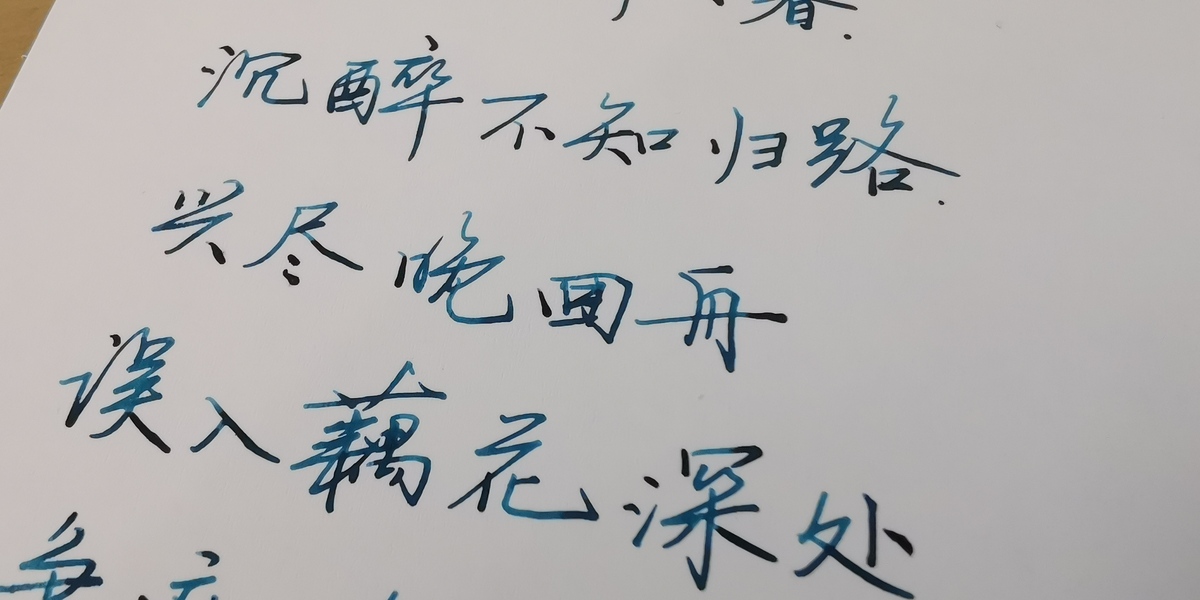 沉醉不知归路.
兴尽晚回再
误入藕花深处